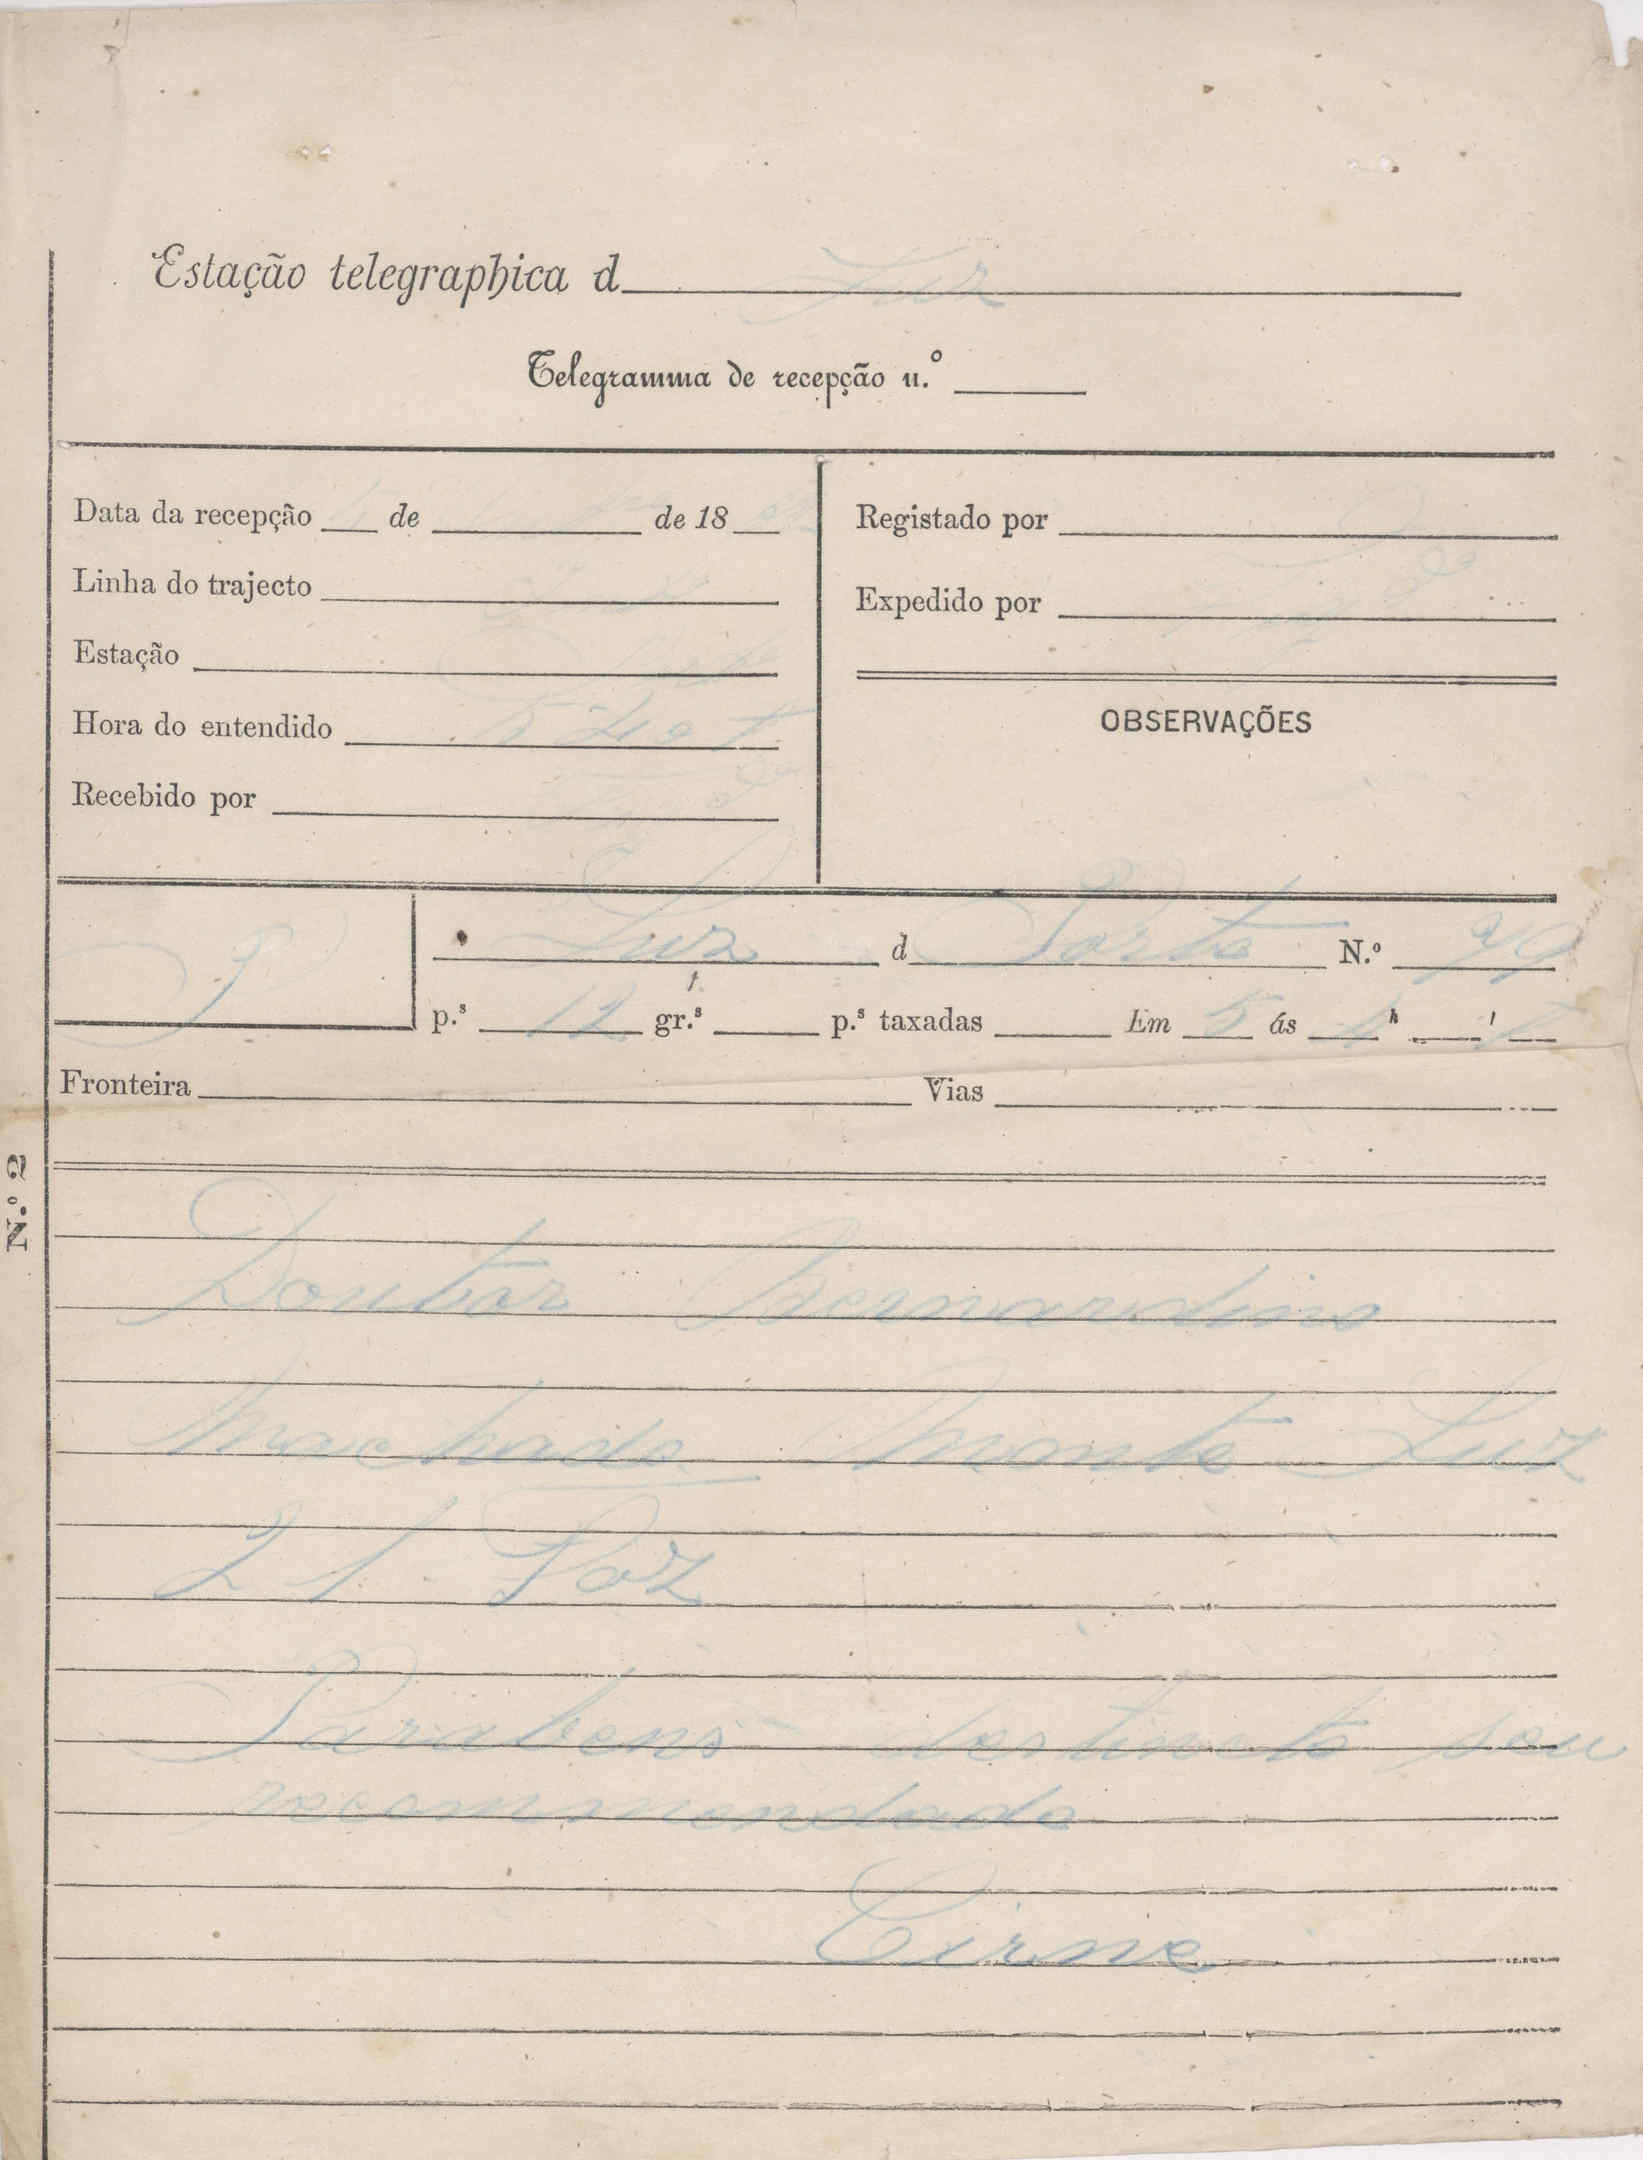 Estação telegraphica d Luz
Telegramma de recepção n.º
Data da recepção de de 18
Linha do trajecto
Estação
Hora do entendido
Recebido por
Registado por
Expedido por
OBSERVAÇÕES
Luz d Porto N.º 79
p.s 12 gr.s p.s taxadas Em 5 ás h '
Fronteira Vias
N.º 2
Doutor Bernardino
Machado Monte Luz
21 Foz
Parabens destincto seu
recommendado
Cirne